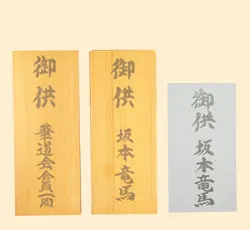 御供
華道会会員一同
御供
坂本竜馬
御供
坂本竜馬